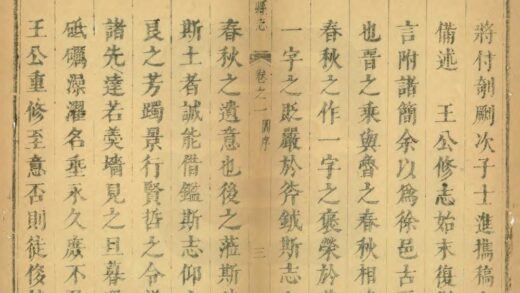 將付剞劂次子士進攜稿
備述　王公修志始末復
言附諸簡余以為徐邑古
也晉之乘與魯之春秋相
春秋之作一字之褒榮於
一字之貶嚴於斧鉞斯志
卷之一　舊序　三
春秋之遺意也後之蒞斯
斯土者誠能借鑑斯志仰
良之芳躅景行賢哲之令
諸先達若羹墻見之旦暮
砥礪澡濯名垂永久庶不
王公重修至意否則徒